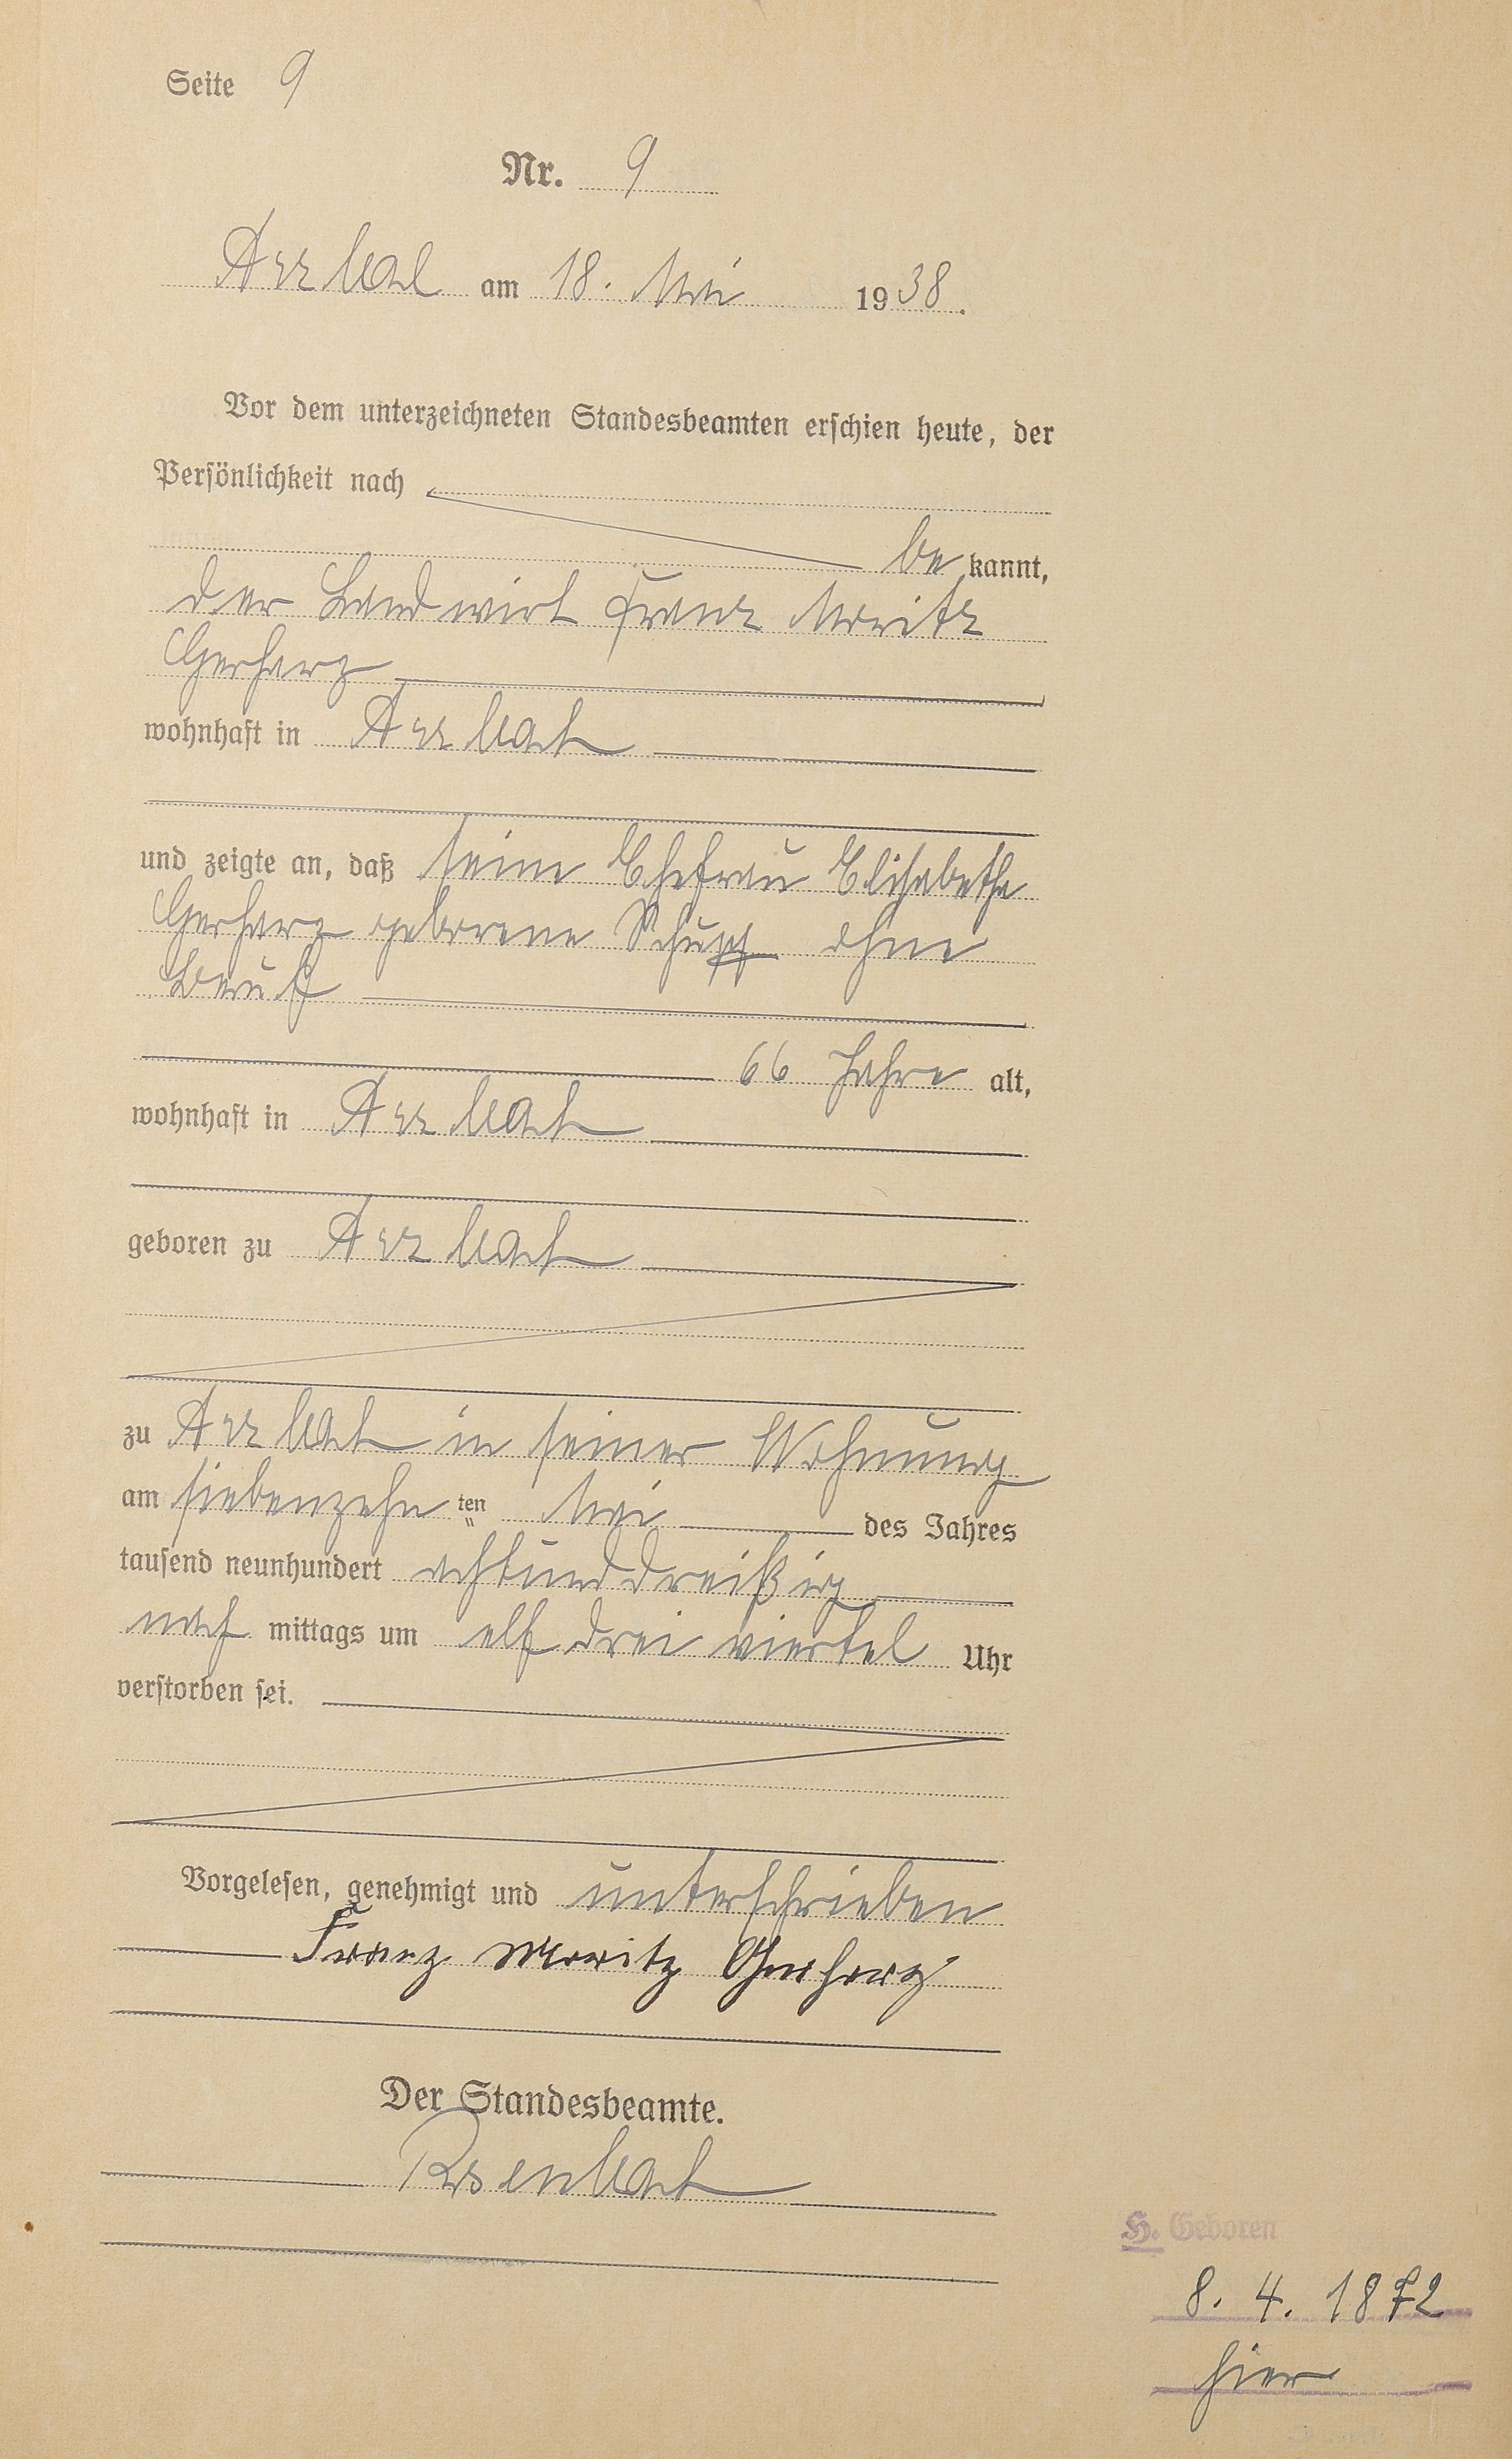 Seite 9
Nr. 9
Arzbach am 18. Mai 1938.
Vor dem unterzeichneten Standesbeamten erschien heute, der
Persönlichkeit nach
be kannt,
der Landwirt Franz Moritz
Gerharz
wohnhaft in Arzbach
und zeigte an, daß seine Ehefrau Elisabetha
Gerharz geborene ohne
Beruf
66 Jahre alt,
wohnhaft in Arzbach
geboren zu Arzbach
zu Arzbach in seiner Wohnung
am siebenzehn ten Mai des Jahres
tausend neunhundert achtunddreißig
nach mittags um elf drei viertel Uhr
verstorben sei.
Vorgelesen, genehmigt und unterschrieben
Franz Moritz Gerharz
Der Standesbeamte.
H. Geboren
8. 4. 1872
hier